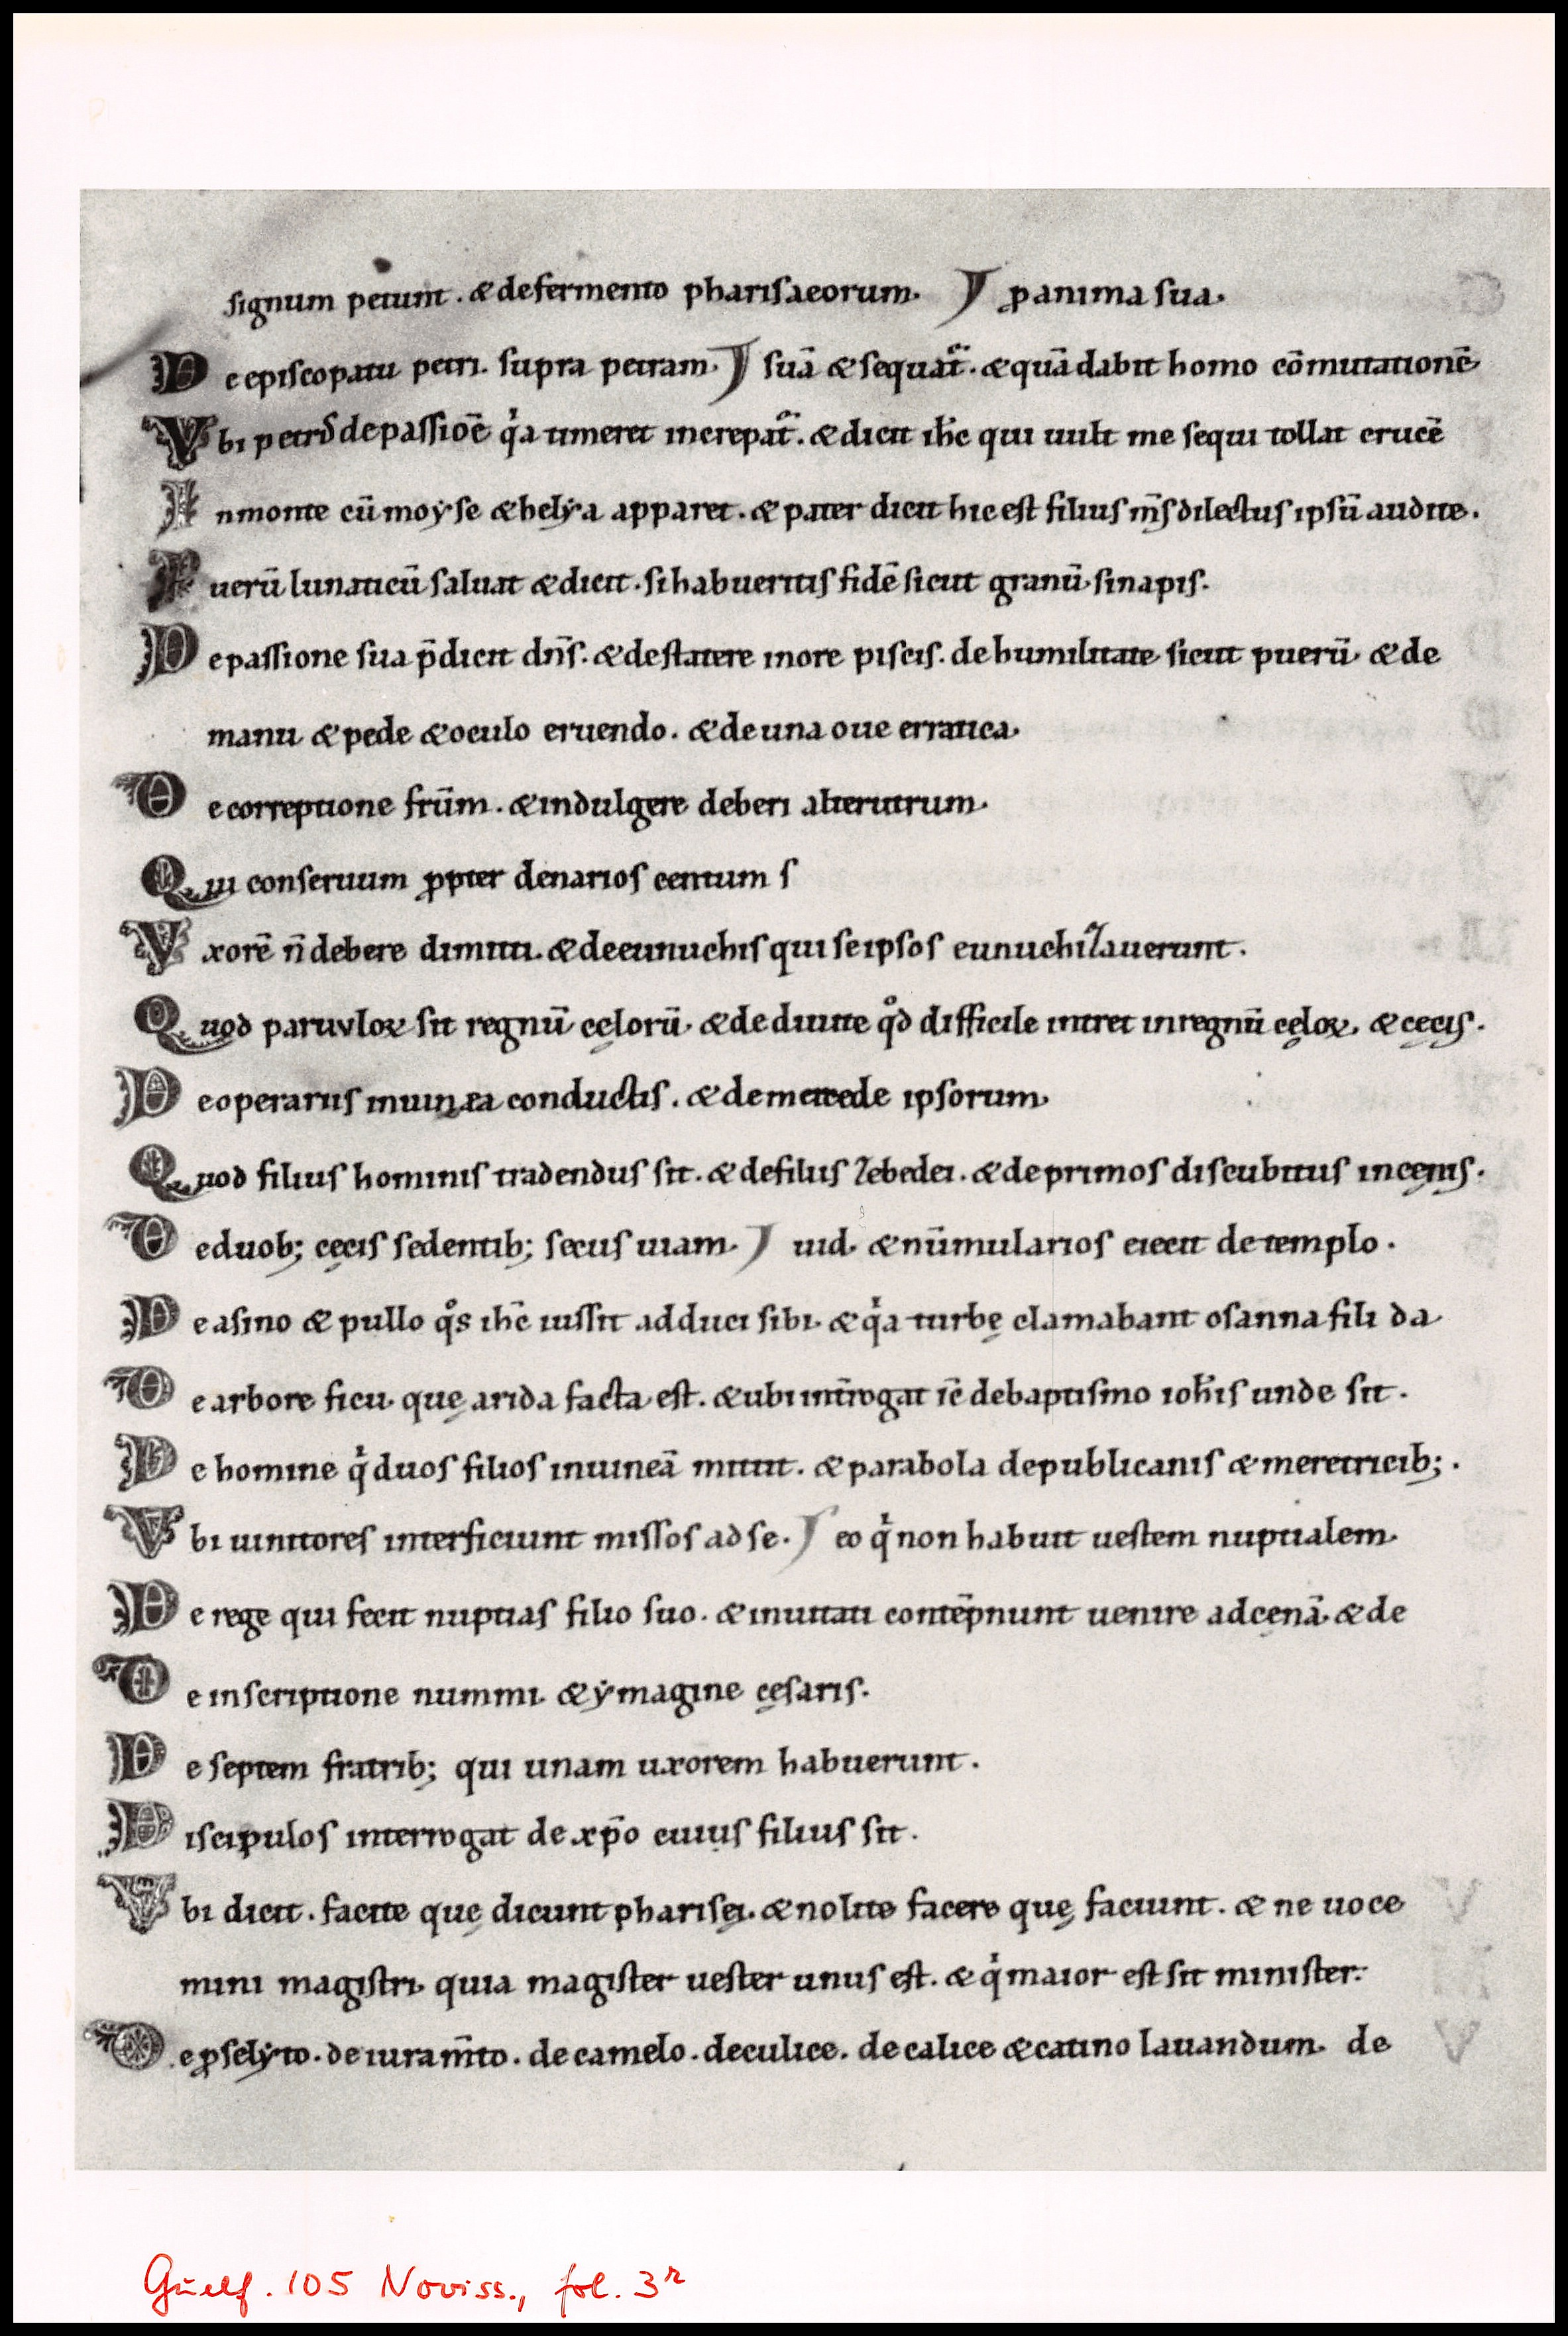 signum petunt. & de fermento pharisaeorum. ꝓ anima sua.
De episcopatu petri. supra petram. suā & sequat̄. & quā dabit homo cōmutationē
Vbi petrū de passiōe qͥa timeret increpat̄. & dicit ih̄c qui uult me sequi tollat crucē
In monte cū moẏse & helẏa apparet. & pater dicit hic est filius m̄s dilectus ipsū audite.
Puerū lunaticū saluat & dicit. si habueritis fidē sicut granū sinapis.
De passione sua p̄dicit dn̄s. & de statere in ore piscis. de humilitate sicut puerū & de
manu & pede & oculo eruendo. & de una oue erratica.
De correptione frūm. & indulgere deberi alterutrum.
Qui conseruum ꝓpter denarios centum s
Vxorē n̄ debere dimitti. & de eunuchis qui se ipsos eunuchizauerunt.
Quod paruuloꝝ sit regnū cęlorū. & de diuite qͦd difficile intret in regnū cęloꝝ. & cęcis.
De operariis in uinea conductis. & de mercede ipsorum.
Quod filius hominis tradendus sit. & de filiis zebedei. & de primos discubitus in cęnis.
De duob; cęcis sedentib; secus uiam. uid. & nūmularios eiecit de templo.
De asino & pullo qͦs ih̄c iussit adduci sibi. & qͥa turbę clamabant osanna fili da
De arbore ficu. quę arida facta est. & ubi int̄rogat ic̄ de baptismo ioh̄is unde sit.
De homine qͥ duos filios in uineā mittit. & parabola de publicanis & meretricib;.
Vbi uinitores interficiunt missos ad se. eo qͥ non habuit uestem nuptialem.
De rege qui fecit nuptias filio suo. & inuitati contēpnunt uenire ad cęnā. & de
De inscriptione nummi. & ẏmagine cęsaris.
De septem fratrib; qui unam uxorem habuerunt.
Discipulos interrogat de xp̄o cuius filius sit.
Vbi dicit. facite quę dicunt pharisęi. & nolite facere quę faciunt. & ne uoce
mini magistri. quia magister uester unus est. & qͥ maior est sit minister.
De ꝓselẏto. de iuram̄to. de camelo. de culice. de calice & catino lauandum. de
Guelf. 105 Noviss., fol. 3r